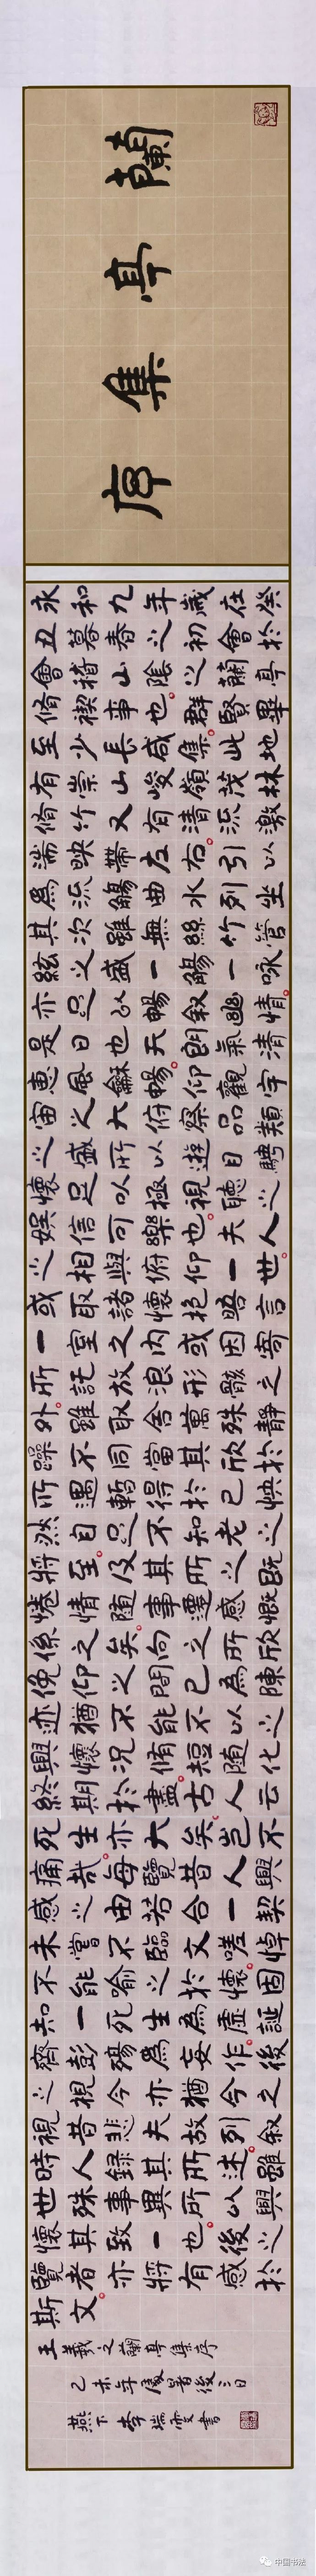 蘭亭集序
永和九年歲在癸
丑暮春之初會於
會稽山陰之蘭亭
脩禊事也群賢畢
至少長咸集此地
有崇山峻嶺茂林
脩竹又有清流激
湍映帶左右引以
為流觴曲水列坐
其次雖無絲竹管
絃之盛一觴一詠
亦足以暢敘幽情
是日也天朗氣清
惠風龢暢仰觀宇
宙之大俯察品類
之盛所以遊目騁
懷足以極視聽之
娛信可樂也夫人
之相與俯仰一世
或取諸懷抱晤言
一室之內或因寄
所託放浪形骸之
外雖取舍萬殊靜
躁不同當其欣於
所遇暫得於己怏
然自足不知老之
將至及其所之既
惓情隨事遷感慨
係之矣向之所欣
俛仰之間已為陳
迹猶不能不以之
興懷況脩短隨化
終期於盡古人云
死生亦大矣豈不
痛哉每覽昔人興
感之由若合一契
未嘗不臨文嗟悼
不能喻之於懷固
知一死生為虛誕
齊彭殤為妄作後
之視今亦猶今之
視昔悲夫故列敘
時人錄其所述雖
世殊事異所以興
懷其致一也後之
覽者亦將有感於
斯文
王羲之蘭亭集序
乙未年處暑後三日
燕下李瑞霞書
中国书法